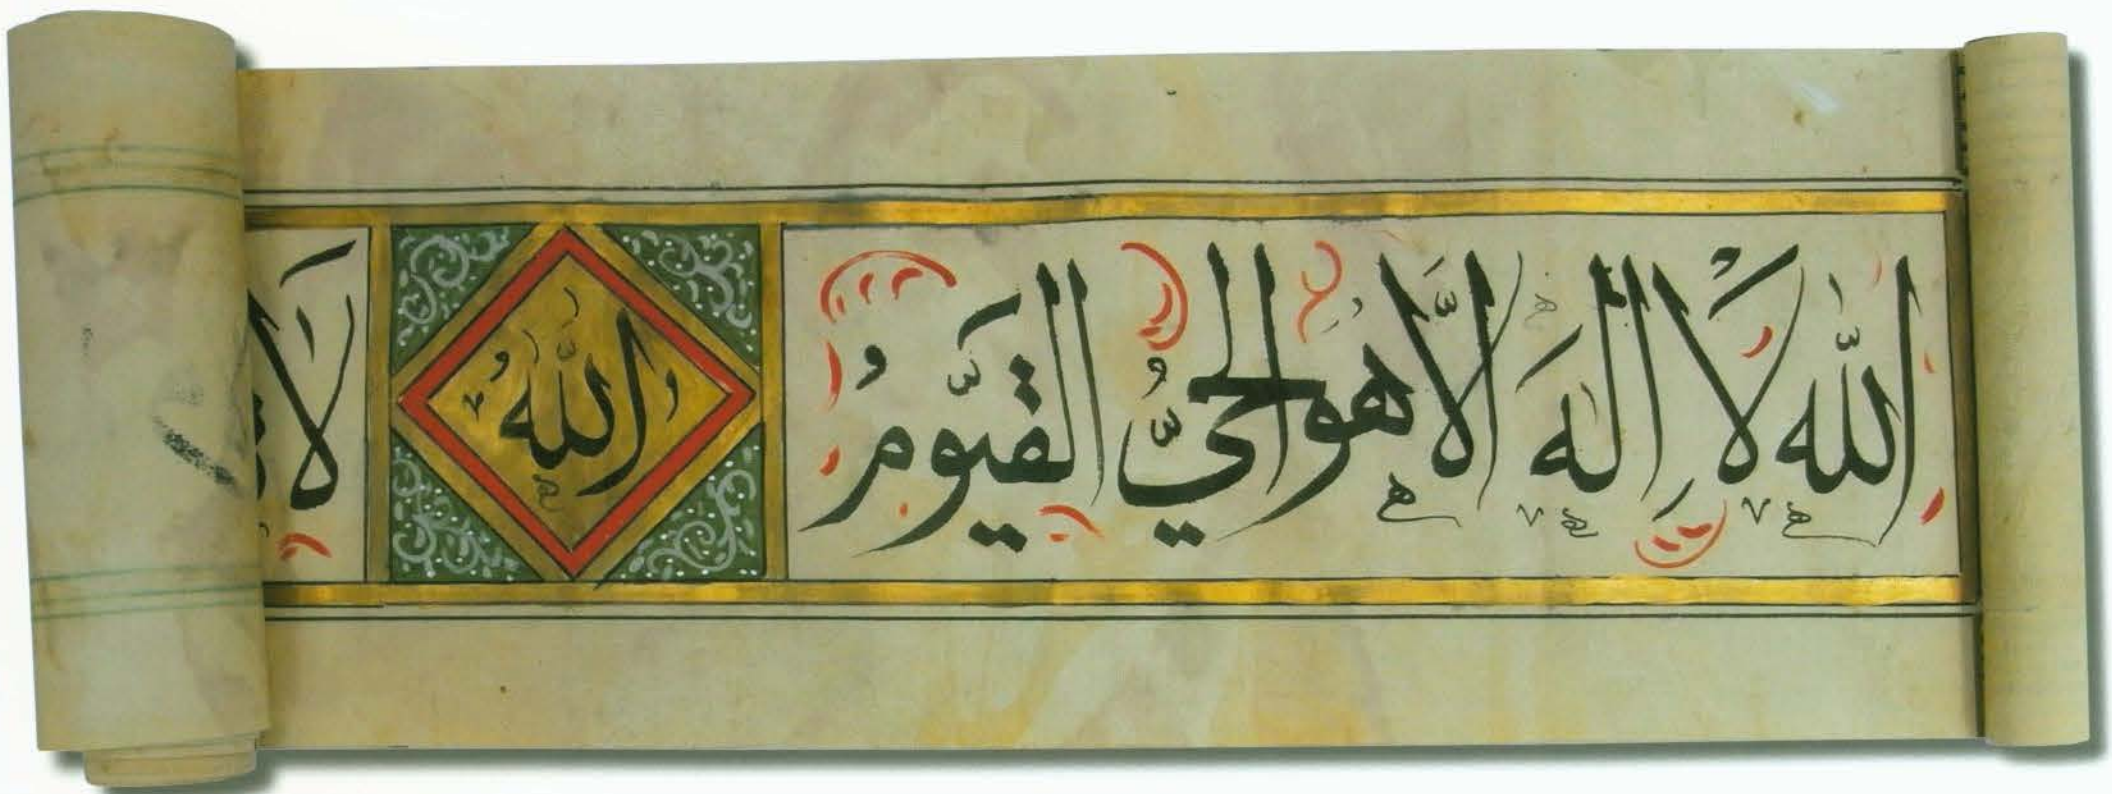 اللّٰه لَا اِلٰهَ اِلَّا هُوَ الْحَيُّ الْقَيُّومُ
اللّٰهُ
لَا